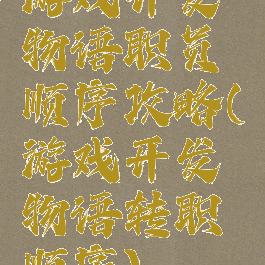 游戏开发
物语职员
顺序攻略(
游戏开发
物语转职
顺序)